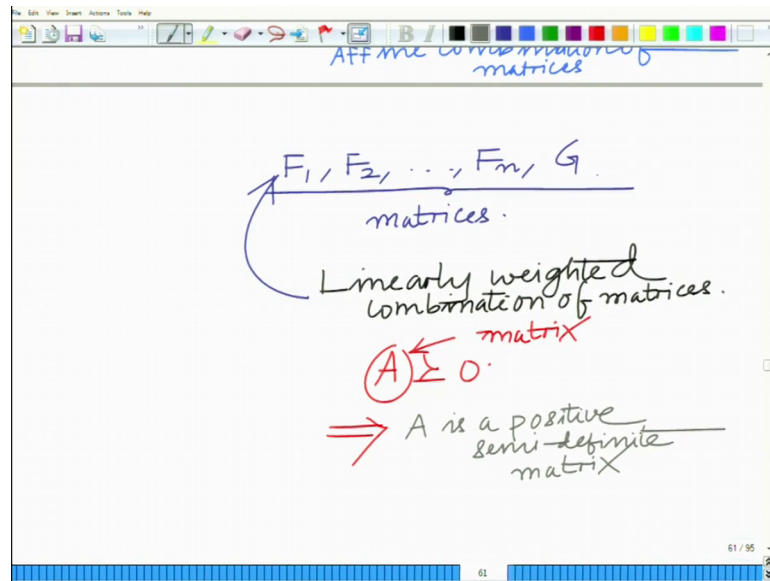 File Edit View Insert Actions Tools Help
Affine combination of
matrices
F₁, F₂, ..., Fₙ, G.
matrices.
Linearly weighted
combination of matrices.
matrix
A ⪰ 0.
⇒ A is a positive
semi-definite
matrix
61 / 95
61